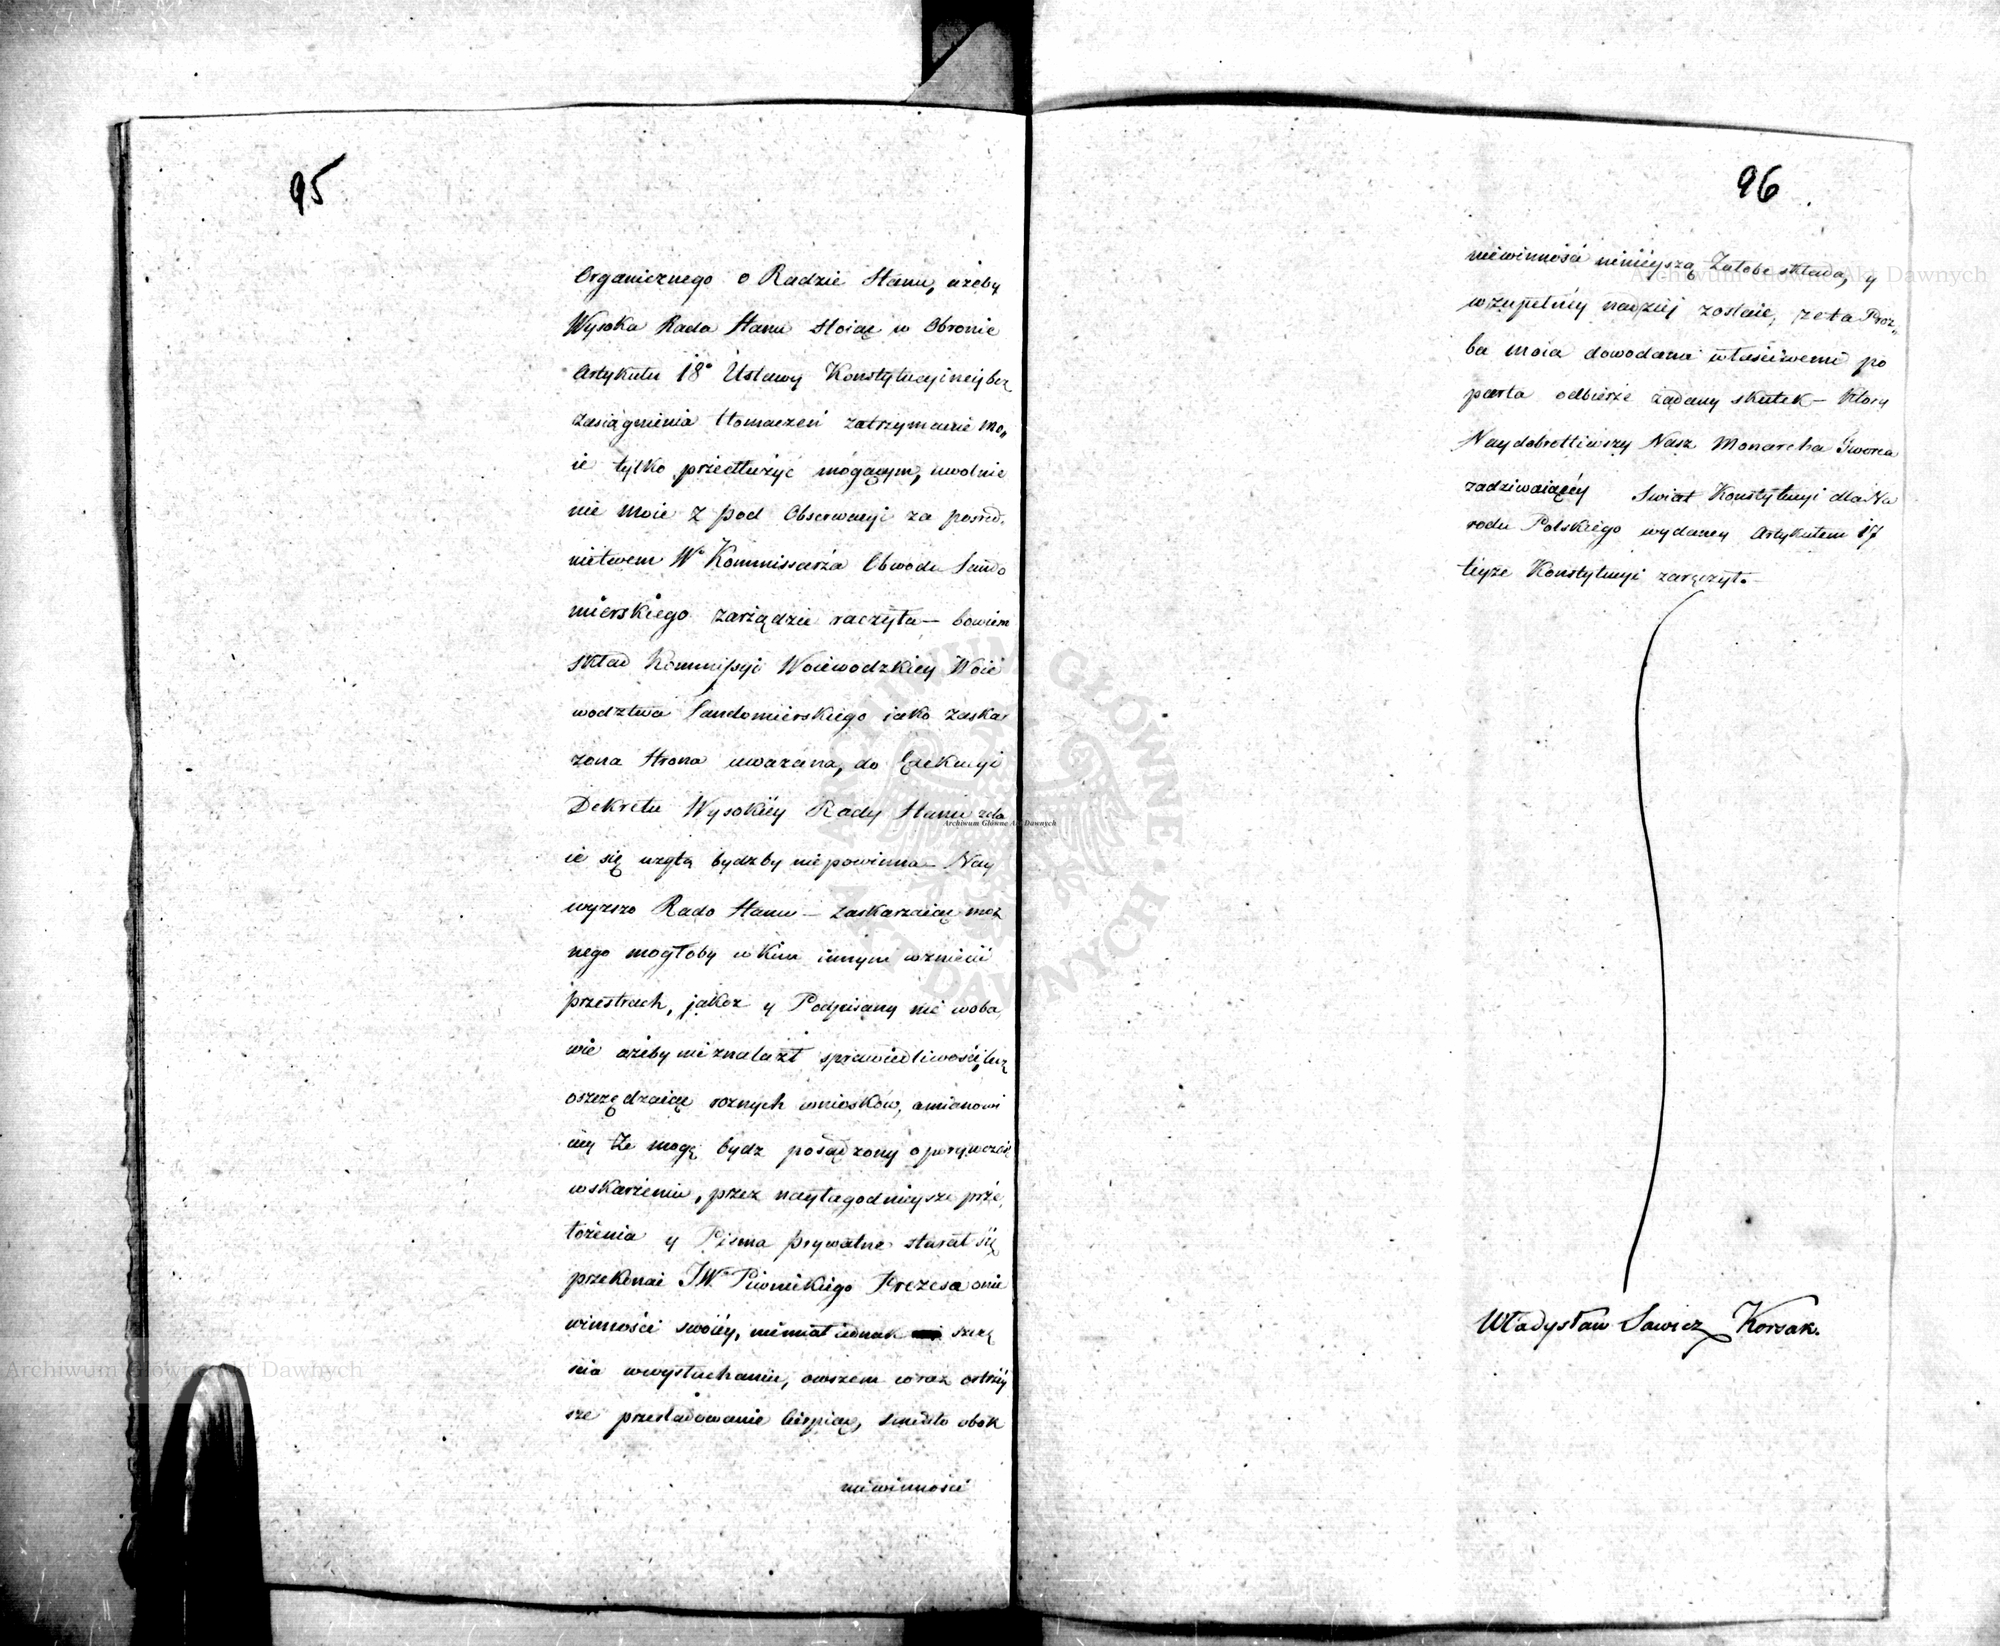 95
Organicznego o Radzie Stanu, ażeby
Wysoka Rada Stanu stoiąc w Obronie
Artykułu 18º Ustawy Konstytucyiney bez
zasiągnienia tłomaczeń zatrzymanie mo„
ie tylko przedłużyć mogącym, uwolnie
nie moie z pod Obserwacyi za pośred„
nictwem Wº Kommissarza Obwodu Sando
mierskiego zarządzić raczyła — bowiem
skład Kommissyi Woiewodzkiey Woie
wodztwa Sandomierskiego jako zaska„
rzona Strona uważana, do Exekucyi
Dekretu Wysokiey Rady Stanu zda
ie się użytą bydźby niepowinna — Nay
wyższo Rado Stanu — zaskarżaiąc moż
nego mogłoby w kim innym wzniecić
przestrach, jakoż y Podpisany nie w oba„
wie ażeby nieznalazł sprawiedliwości, lecz
oszczędzaiąc rożnych wniosków, a mianowi
cie że mogę bydz posądzony o porywczość
w skarżeniu, przez nayłagodnieysze prze„
łożenia y Pisma prywatne starał się
przekonać JWº Piwnickiego Prezesa o nie
winności swoiey, niemiał iednak szczę
ścia w wysłuchaniu, owszem coraz ostrzey
sze prześladowanie cierpiąc, obok
niewinności
96
niewinności nineyszą Załobę składa, y
w zupełney nadziei zostaie, że ta Proz„
ba moia dowodami właściwemi po
parta odbierze żądany skutek — Ktory
Naydobrotliwszy Nasz Monarcha Tworca
zadziwiaiącey Swiat Konstytucyi dla Na
rodu Polskiego wydaney Artykułem 17
teyże Konstytucyi zaręczył. —
Władysław Sawicz Korsak.
Archiwum Główne Akt Dawnych
Archiwum Główne Akt Dawnych
Archiwum Główne Akt Dawnych
ARCHIWUM GŁÓWNE AKT DAWNYCH